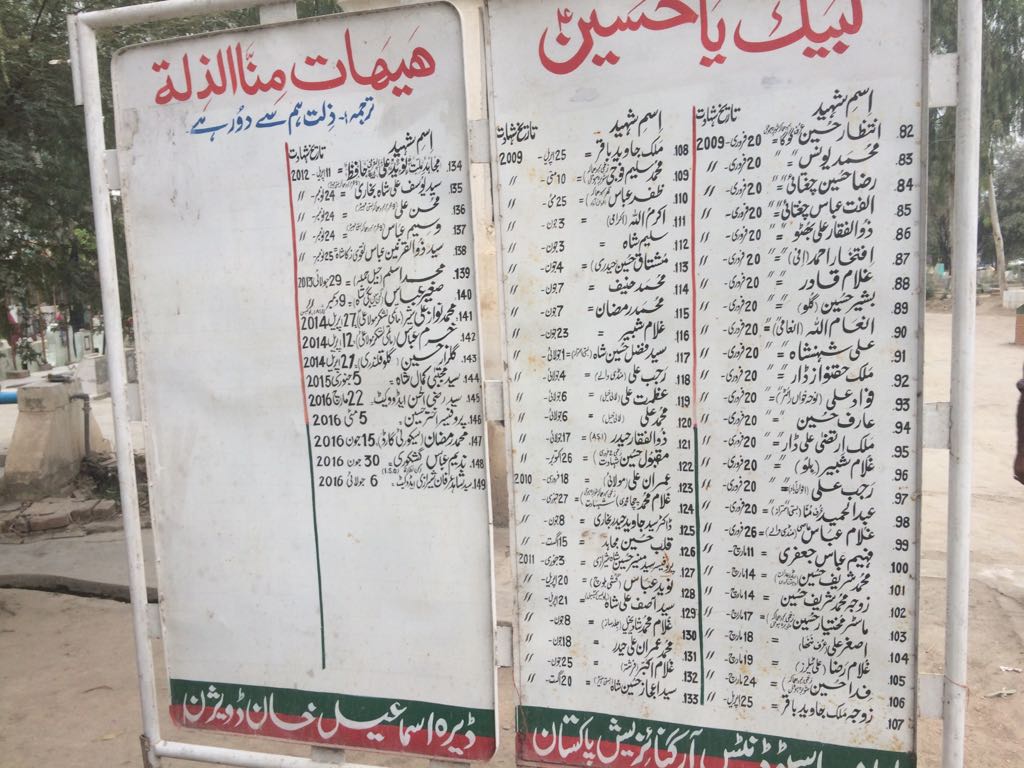 لبیک یا حسینؑ
اسمِ شہید تاریخ شہادت
82. انتظار حسین 20 فروری- 2009
83. محمد یونس 〃 20 فروری- 〃
84. رضا حسین چغتائی 〃 20 فروری- 〃
85. الفت عباس چغتائی 〃 20 فروری- 〃
86. ذوالفقار علی بھٹو 〃 20 فروری- 〃
87. افتخار احمد 〃 20 فروری- 〃
88. غلام قادر 〃 20 فروری- 〃
89. بشیر حسین (گلو) 〃 20 فروری- 〃
90. انعام اللہ 〃 20 فروری- 〃
91. علی شہنشاہ 〃 20 فروری- 〃
92. ملک حقنواز ڈار 〃 20 فروری- 〃
93. فواد علی 20 فروری- 〃
94. عارف حسین 〃 20 فروری- 〃
95. ملک ارتضیٰ علی ڈار 〃 20 فروری- 〃
96. غلام شبیر 〃 20 فروری- 〃
97. رجب علی 20 فروری- 〃
98. عبدالحمید 20 فروری- 〃
99. غلام عباس 26 فروری- 〃
100. فہیم عباس جعفری = 11 مارچ- 〃
101. محمد شریف حسین = 14 مارچ- 〃
102. زوجہ محمد شریف حسین = 14 مارچ- 〃
103. ماسٹر مختیار حسین 17 مارچ- 〃
104. اصغر علی = 18 مارچ- 〃
105. غلام رضا = 19 مارچ- 〃
106. فدا حسین = 24 مارچ- 〃
107. زوجہ ملک جاوید باقر = 25 اپریل- 〃
اسمِ شہید تاریخ شہادت
108. ملک جاوید باقر = 25 اپریل- 2009
109. محمد سیم فوجی = 10 مئی- 〃
110. ظفر عباس = 25 مئی- 〃
111. اکرم اللہ (اکرامی) = 3 جون- 〃
112. سلیم شاہ = 3 جون- 〃
113. مشتاق حسین (حیدری) = 4 جون- 〃
114. محمد حنیف = 7 جون- 〃
115. محمد رمضان = 7 جون- 〃
116. غلام شبیر = 23 جون- 〃
117. سید فضل حسین شاہ 1 جولائی- 〃
118. رجب علی (منڈی والے) = 4 جولائی- 〃
119. عظمت علی = 6 جولائی- 〃
120. محمد علی = 6 جولائی- 〃
121. ذوالفقار حیدر (ASI) = 17 جولائی- 〃
122. مقبول حسین = 26 اکتوبر- 〃
123. عمران علی (مولائی) = 18 فروری- 2010
124. غلام محمد = 27 جنوری- 〃
125. ڈاکٹر سید جاوید حیدر بخاری = 8 جون- 〃
126. قلب حسین مجاہد = 15 اگست- 〃
127. پروفیسر سید منیر حسین شاہ شیرازی = 3 جنوری- 2011
128. نوید عباس = 20 اپریل- 〃
129. سید آصف علی شاہ = 21 اپریل- 〃
130. غلام محمد = 8 جون- 〃
131. محمد عمران علی حیدر = 18 جون- 〃
132. غلام اکبر = 25 جون- 〃
133. سید اعجاز حسین شاہ = 20 اگست- 〃
اسٹوڈنٹس آرگنائزیشن پاکستان
هيهات منّا الذلة
ترجمہ:- ذلت ہم سے دُور ہے
اسمِ شہید تاریخ شہادت
134. 11 اپریل- 2012
135. سید یوسف علی شاہ بخاری = 24 نومبر- 〃
136. محسن علی = 24 نومبر- 〃
137. وسیم عباس = 24 نومبر- 〃
138. سید ذوالقرنین عباس نقوی 25 نومبر- 〃
139. محمد اسلم 29 جولائی 2013
140. صغیر عباس = 9 دسمبر 〃
141. محمد نواز 27 اپریل- 2014
142. خرم عباس 12 اپریل- 2014
143. گلزار حسین 27 اپریل- 2014
144. سید مجتبیٰ کمال شاہ = 5 جنوری 2015
145. سید رضی الحسن ایڈووکیٹ = 22 مارچ 2016
146. پروفیسر اختر حسین = 5 مئی 2016
147. محمد رمضان (سیکورٹی گارڈ) 15 جون 2016
148. ندیم عباس گشکوری = 30 جون 2016
149. سید شاہد شیرازی ایڈوکیٹ = 6 جولائی 2016
ڈیرہ اسماعیل خان ڈویژن